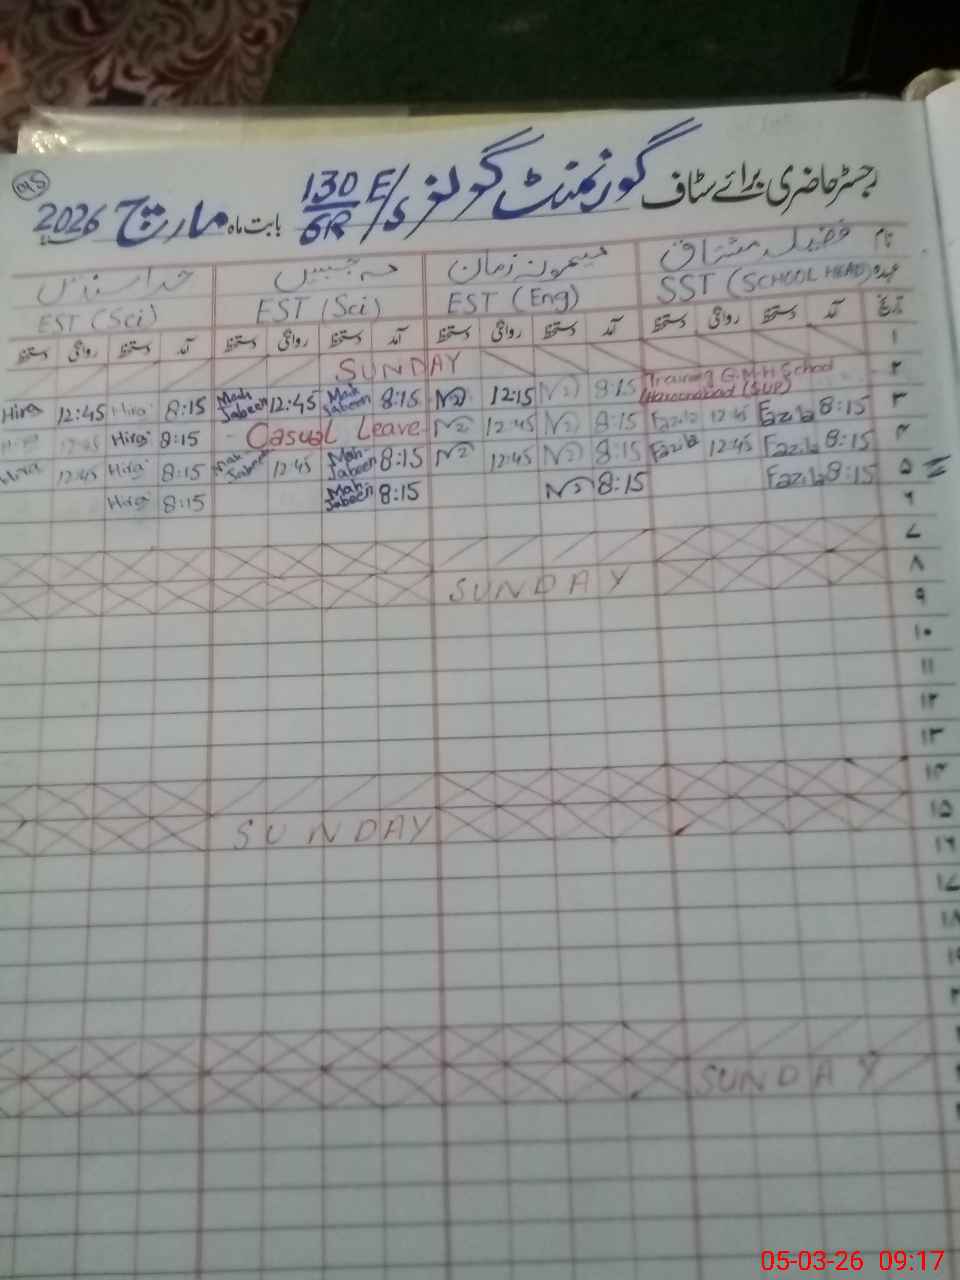 رجسٹر حاضری برائے سٹاف گورنمنٹ گرلز E/S 130/6R بابت ماہ مارچ 2026
نام فضیلہ مشتاق میمونہ زمان مہ جبیں
عہدہ SST (SCHOOL HEAD) EST (Eng) EST (Sci) EST (Sci)
تاریخ آمد دستخط روانگی دستخط آمد دستخط روانگی دستخط آمد دستخط روانگی دستخط آمد دستخط روانگی دستخط
۱ SUNDAY
۲ Training G.M.H School Haroonabad (SUP) 8:15 12:15 8:15 Mah Jabeen 12:45 Mah Jabeen 8:15 Hira 12:45 Hira
۳ 8:15 Fazila 12:45 Fazila 8:15 12:45 Casual Leave 8:15 Hira
۴ 8:15 Fazila 12:45 Fazila 8:15 12:45 8:15 Mah Jabeen 12:45 Mah Jabeen 8:15 Hira 12:45 Hira
۵ 8:15 Fazila 8:15 8:15 Mah Jabeen 8:15 Hira
۶
۷
۸ SUNDAY
۹
۱۰
۱۱
۱۲
۱۳
۱۴
۱۵ SUNDAY
۱۶
۱۷
۱۸
SUNDAY
05-03-26 09:17